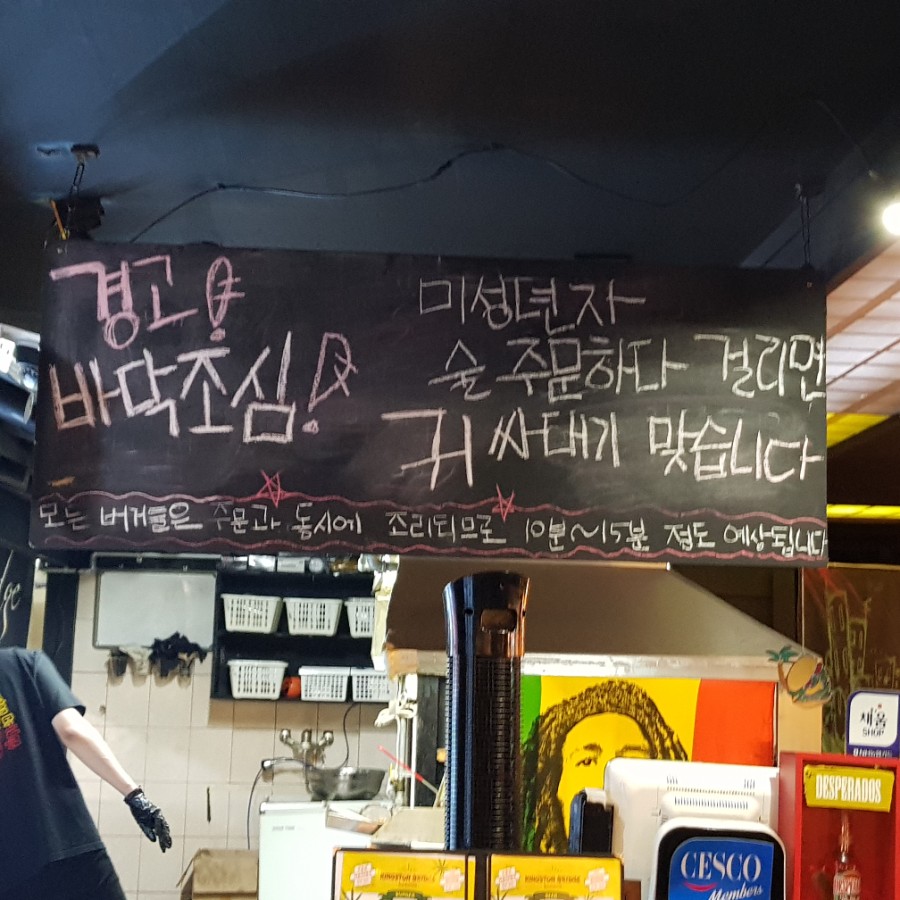 경고!
바닥조심!
미성년자
술 주문하다 걸리면
귀 싸대기 맞습니다
모든 버거들은 주문과 동시에 조리되므로 10분~15분 정도 예상됩니다
채움
SHOP
DESPERADOS
CESCO
Members
KINGSTON
KINGSTON